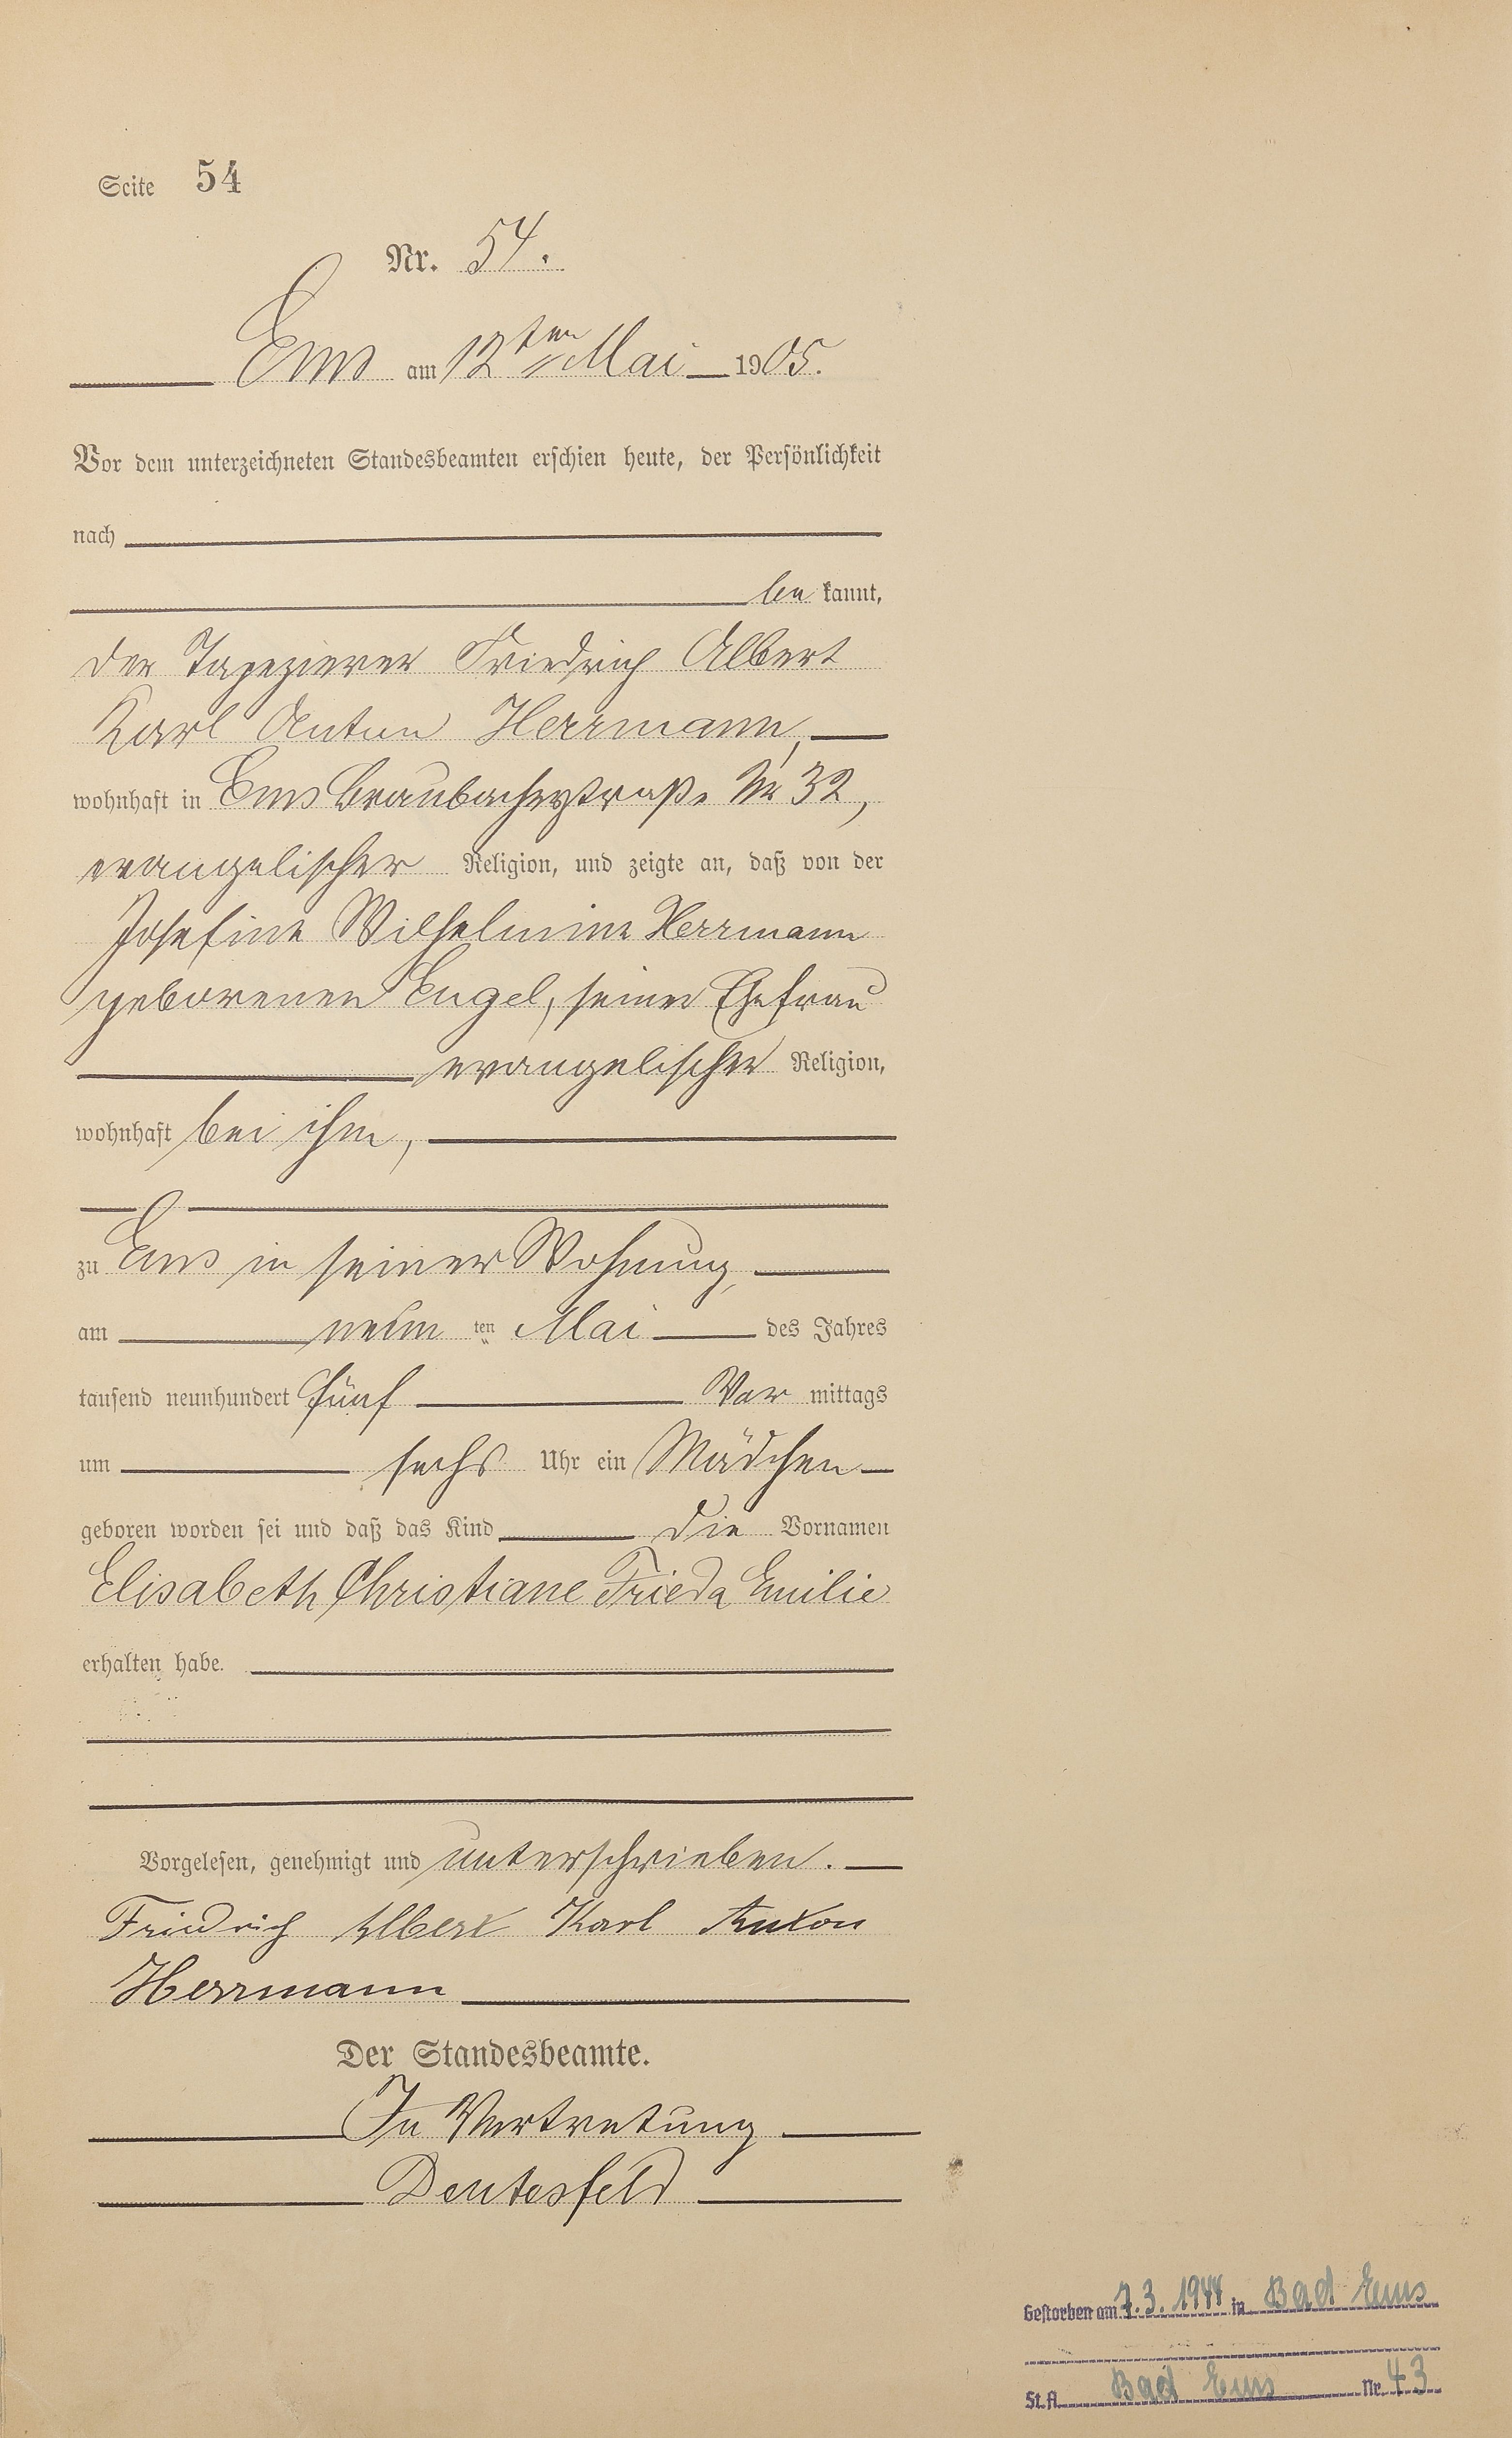 Seite 54
Nr. 54.
Ems am 12ten Mai 1905.
Vor dem unterzeichneten Standesbeamten erschien heute, der Persönlichkeit
nach
be kannt,
der Tapezierer Friedrich Albert
Karl Anton Herrmann,
wohnhaft in Ems Braubacherstraße Nr 32,
evangelischer Religion, und zeigte an, daß von der
Josefine Wilhelmine Herrmann
geborenen Engel, seiner Ehefrau
evangelischer Religion,
wohnhaft bei ihm,
zu Ems in seiner Wohnung,
am neun ten Mai des Jahres
tausend neunhundert fünf Vor mittags
um sechs Uhr ein Mädchen
geboren worden sei und daß das Kind die Vornamen
Elisabeth Christiane Frieda Emilie
erhalten habe.
Vorgelesen, genehmigt und unterschrieben.
Friedrich Albert Karl Anton
Herrmann
Der Standesbeamte.
In Vertretung
Deutesfeld
Gestorben am 7.3.1944 in Bad Ems
St.A. Bad Ems Nr. 43